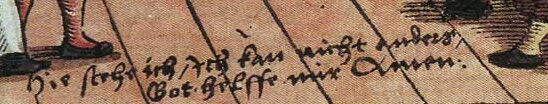 Hie stehe ich / Ich kan nicht anders /
Got helffe mir Amen.